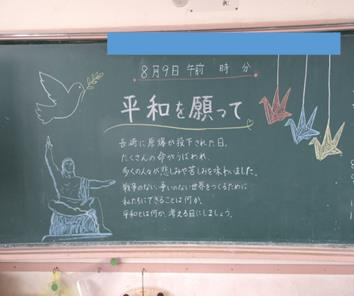 8月9日 午前 時 分
平和を願って
長崎に原爆が投下された日。
たくさんの命がうばわれ、
多くの人々が悲しみや苦しみを味わいました。
戦争のない、争いのない世界をつくるために
私たちにできることは何か、
平和とは何か、考える日にしましょう。